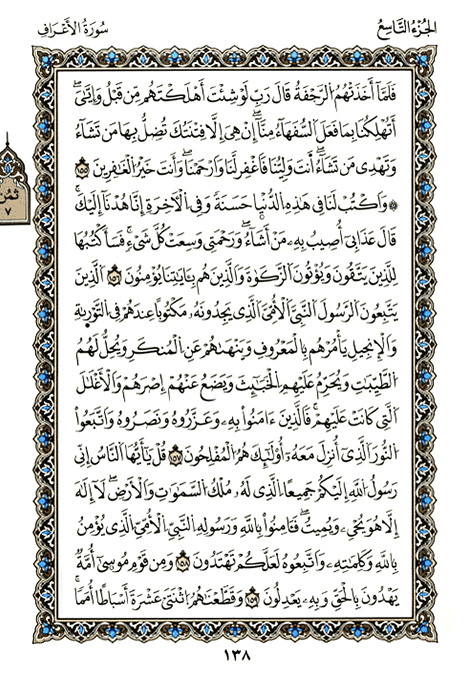 الجُزْءُ التَّاسِعُ
سُورَةُ الأَعْرَافِ
فَلَمَّا أَخَذَتْهُمُ الرَّجْفَةُ قَالَ رَبِّ لَوْ شِئْتَ أَهْلَكْتَهُم مِّن قَبْلُ وَإِيَّٰيَۖ
أَتُهْلِكُنَا بِمَا فَعَلَ السُّفَهَآءُ مِنَّآۖ إِنْ هِيَ إِلَّا فِتْنَتُكَ تُضِلُّ بِهَا مَن تَشَآءُ
وَتَهْدِي مَن تَشَآءُۖ أَنتَ وَلِيُّنَا فَاغْفِرْ لَنَا وَارْحَمْنَاۖ وَأَنتَ خَيْرُ الْغَٰفِرِينَ ١٥٥
۞ وَاكْتُبْ لَنَا فِي هَٰذِهِ الدُّنْيَا حَسَنَةً وَفِي الْآخِرَةِ إِنَّا هُدْنَآ إِلَيْكَۚ
قَالَ عَذَابِيٓ أُصِيبُ بِهِۦ مَنْ أَشَآءُۖ وَرَحْمَتِي وَسِعَتْ كُلَّ شَيْءٍۚ فَسَأَكْتُبُهَا
لِلَّذِينَ يَتَّقُونَ وَيُؤْتُونَ الزَّكَوٰةَ وَالَّذِينَ هُم بِـَٔايَٰتِنَا يُؤْمِنُونَ ١٥٦ الَّذِينَ
يَتَّبِعُونَ الرَّسُولَ النَّبِيَّ الْأُمِّيَّ الَّذِي يَجِدُونَهُۥ مَكْتُوبًا عِندَهُمْ فِي التَّوْرَىٰةِ
وَالْإِنجِيلِ يَأْمُرُهُم بِالْمَعْرُوفِ وَيَنْهَىٰهُمْ عَنِ الْمُنكَرِ وَيُحِلُّ لَهُمُ
الطَّيِّبَٰتِ وَيُحَرِّمُ عَلَيْهِمُ الْخَبَٰٓئِثَ وَيَضَعُ عَنْهُمْ إِصْرَهُمْ وَالْأَغْلَٰلَ
الَّتِي كَانَتْ عَلَيْهِمْۚ فَالَّذِينَ ءَامَنُوا بِهِۦ وَعَزَّرُوهُ وَنَصَرُوهُ وَاتَّبَعُوا
النُّورَ الَّذِيٓ أُنزِلَ مَعَهُۥٓ أُو۟لَٰٓئِكَ هُمُ الْمُفْلِحُونَ ١٥٧ قُلْ يَٰٓأَيُّهَا النَّاسُ إِنِّي
رَسُولُ اللَّهِ إِلَيْكُمْ جَمِيعًا الَّذِي لَهُۥ مُلْكُ السَّمَٰوَٰتِ وَالْأَرْضِۖ لَآ إِلَٰهَ
إِلَّا هُوَ يُحْيِۦ وَيُمِيتُۖ فَـَٔامِنُوا بِاللَّهِ وَرَسُولِهِ النَّبِيِّ الْأُمِّيِّ الَّذِي يُؤْمِنُ
بِاللَّهِ وَكَلِمَٰتِهِۦ وَاتَّبِعُوهُ لَعَلَّكُمْ تَهْتَدُونَ ١٥٨ وَمِن قَوْمِ مُوسَىٰٓ أُمَّةٌ
يَهْدُونَ بِالْحَقِّ وَبِهِۦ يَعْدِلُونَ ١٥٩ وَقَطَّعْنَٰهُمُ اثْنَتَيْ عَشْرَةَ أَسْبَاطًا أُمَمًاۚ
ثمن
٧
١٣٨